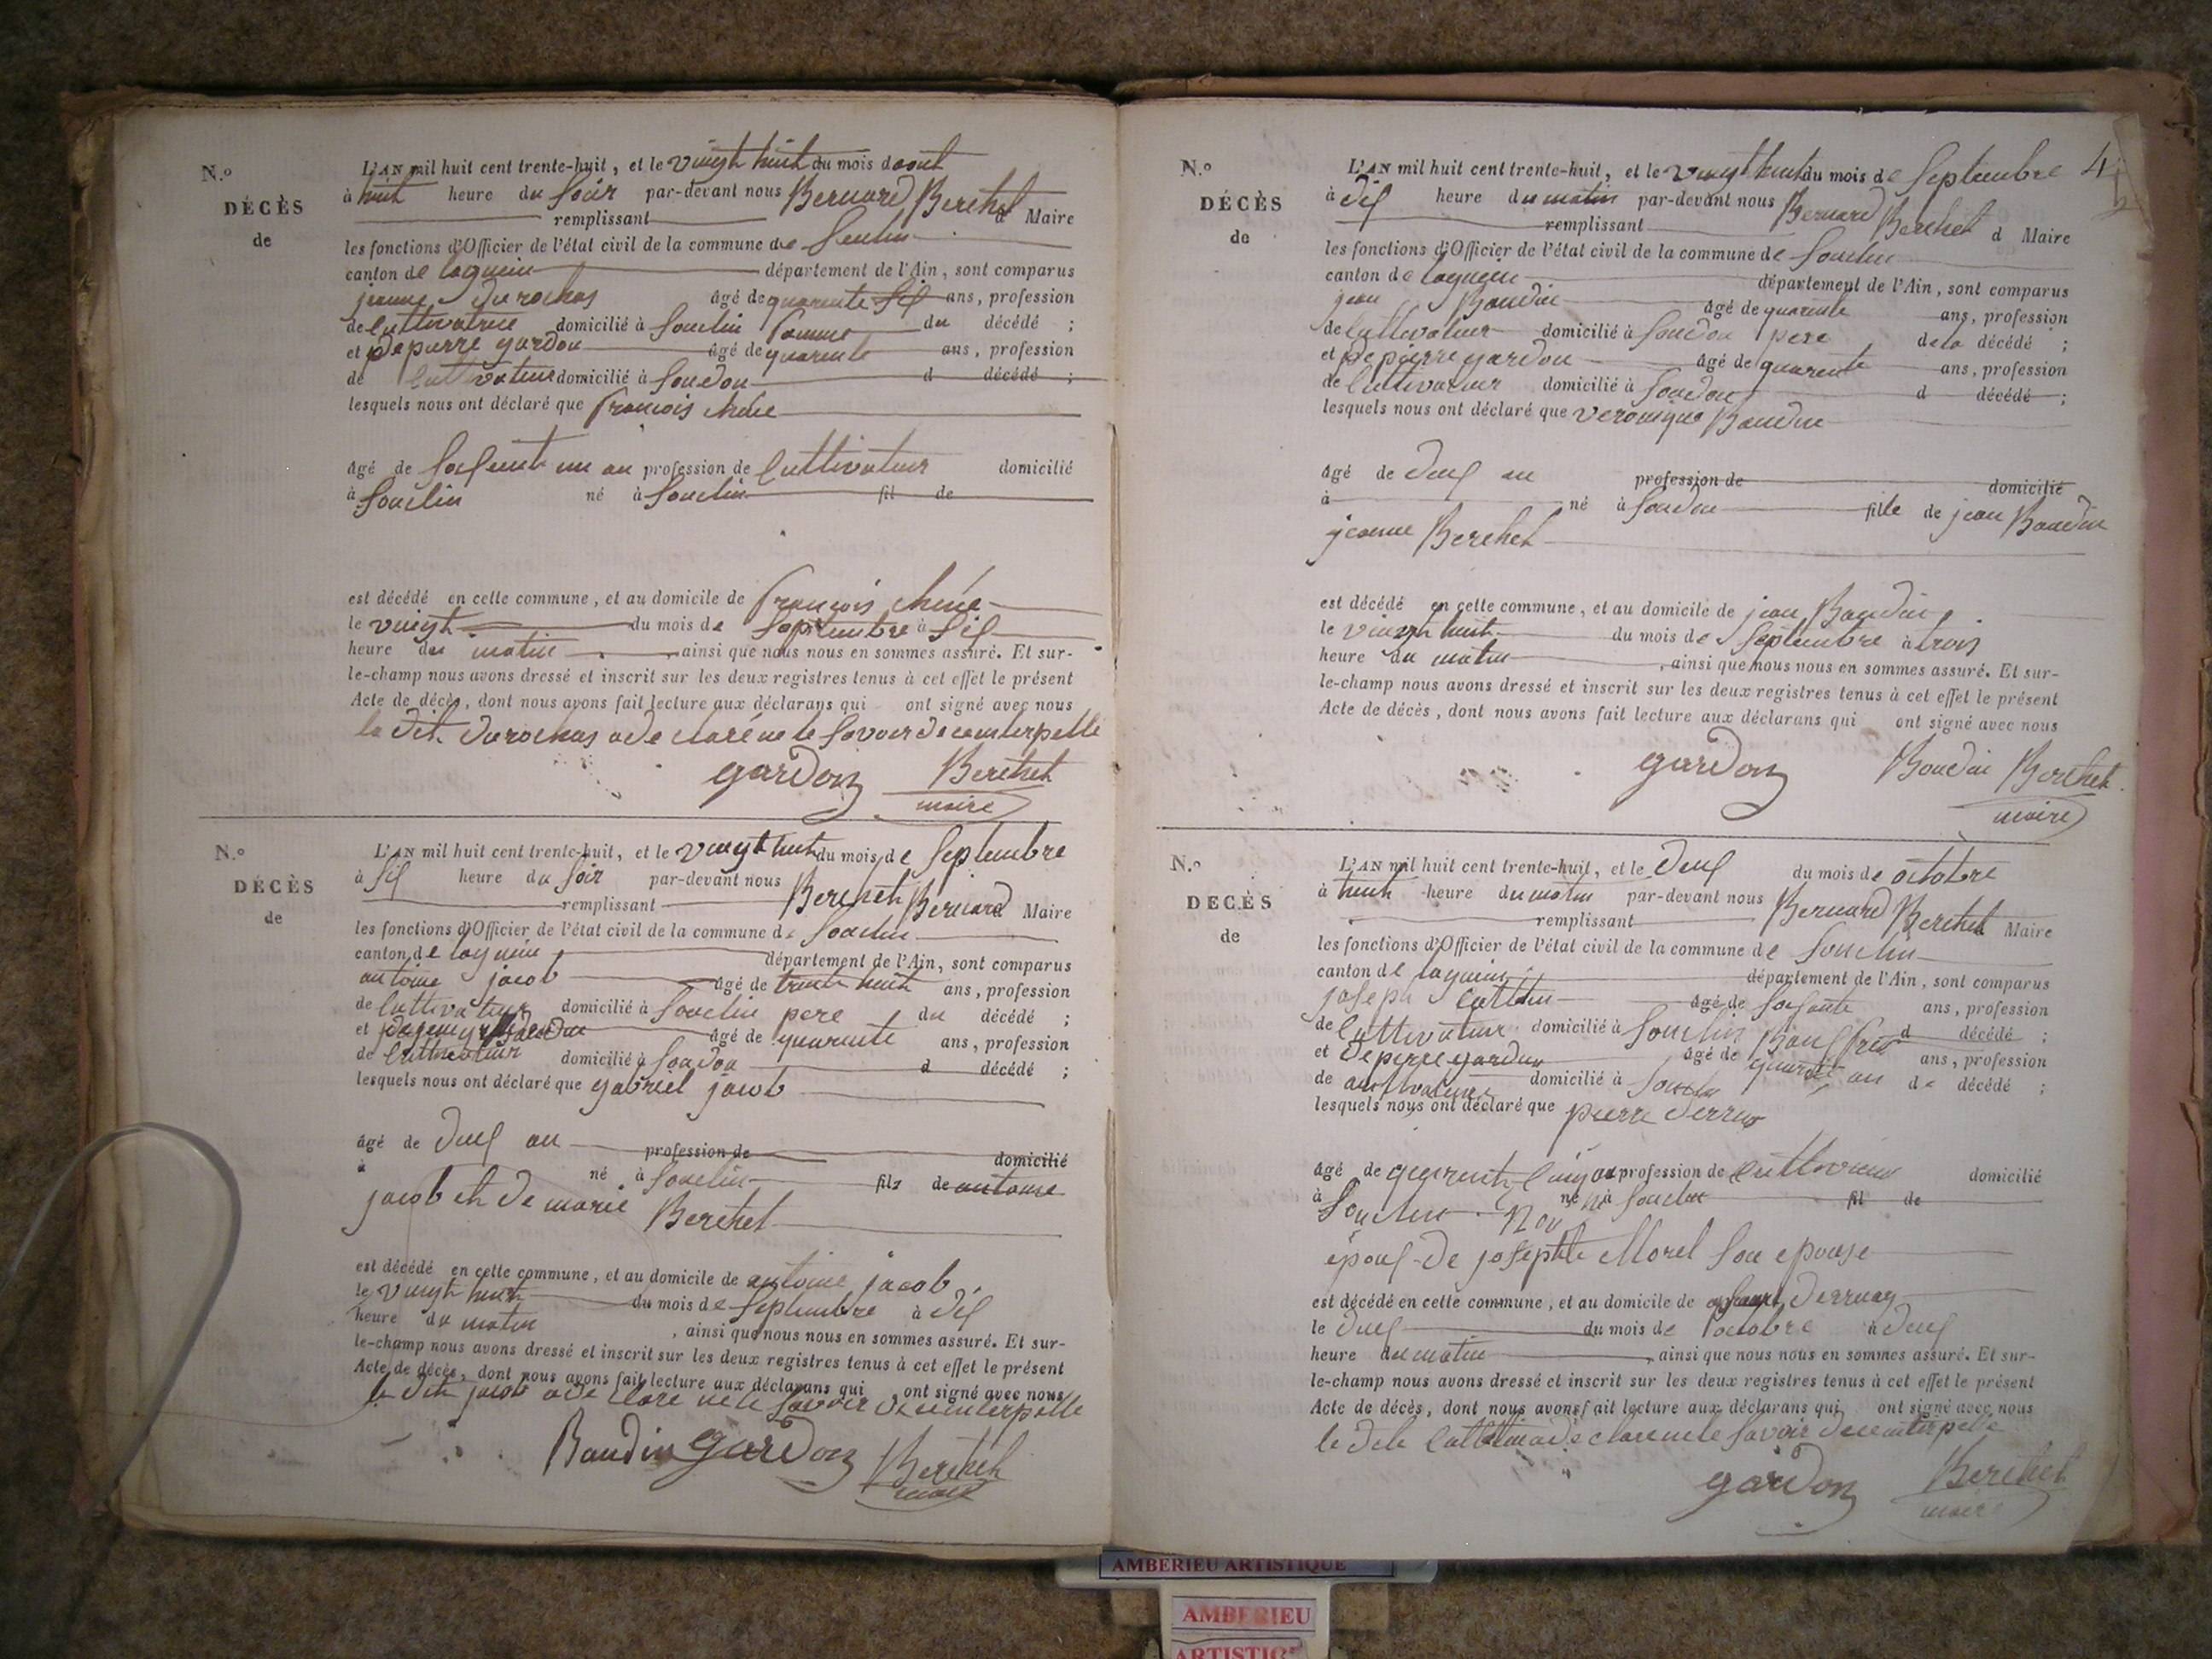 N.o
DÉCÈS
de
L'AN mil huit cent trente-huit, et le vingt huit du mois daout
à huit heure du soir par-devant nous Bernard Berthet d Maire
remplissant
les fonctions d'Officier de l'état civil de la commune de Souclin
canton de lagnieu département de l'Ain, sont comparus
jeanne durochas âgé de quarente sis ans, profession
de cultivatrice domicilié à Souclin famme du décédé ;
et de pierre gardon âgé de quarente ans, profession
de cultivateur domicilié à Soudon d décédé ;
lesquels nous ont déclaré que françois
âgé de soisente un an profession de cultivateur domicilié
à Souclin né à Souclin fil de
est décédé en cette commune, et au domicile de françois
le vingt du mois de septembre à sis
heure du matin ainsi que nous nous en sommes assuré. Et sur-
le-champ nous avons dressé et inscrit sur les deux registres tenus à cet effet le présent
Acte de décès, dont nous avons fait lecture aux déclarans qui ont signé avec nous
la dit durochas a declaré ne le savoir de ce interpellé
gardon Berthet
maire
N.o
DÉCÈS
de
L'AN mil huit cent trente-huit, et le vingt huit du mois de septembre
à sis heure du soir par-devant nous Berthet Bernard Maire
remplissant
les fonctions d'Officier de l'état civil de la commune de Souclin
canton de lagnieu département de l'Ain, sont comparus
antoine jacob âgé de trente huit ans, profession
de cultivateur domicilié à Souclin pere du décédé ;
et âgé de quarente ans, profession
de cultivateur domicilié à Soudon d décédé ;
lesquels nous ont déclaré que gabriel jacob
âgé de deus an profession de domicilié
à né à Souclin fils de antoine
jacob et de marie Berthet
est décédé en cette commune, et au domicile de antoine jacob
le vingt huit du mois de septembre à dis
heure du matin , ainsi que nous nous en sommes assuré. Et sur-
le-champ nous avons dressé et inscrit sur les deux registres tenus à cet effet le présent
Acte de décès, dont nous avons fait lecture aux déclarans qui ont signé avec nous
le dit jacob a declaré ne le savoir de ce interpellé
Baudin gardon Berthet
maire
4
N.o
DÉCÈS
de
L'AN mil huit cent trente-huit, et le vingt huit du mois de septembre
à dis heure du matin par-devant nous Bernard Berthet d Maire
remplissant
les fonctions d'Officier de l'état civil de la commune de Souclin
canton de lagnieu département de l'Ain, sont comparus
jean Baudin âgé de quarente ans, profession
de cultivateur domicilié à Soudon pere de la décédé ;
et de pierre gardon âgé de quarente ans, profession
de cultivateur domicilié à Soudon d décédé ;
lesquels nous ont déclaré que veronique Baudin
âgé de deus an profession de domicilié
à né à Soudon fille de jean Baudin
jeanne Berthet
est décédé en cette commune, et au domicile de jean Baudin
le vingt huit du mois de septembre à trois
heure du matin , ainsi que nous nous en sommes assuré. Et sur-
le-champ nous avons dressé et inscrit sur les deux registres tenus à cet effet le présent
Acte de décès, dont nous avons fait lecture aux déclarans qui ont signé avec nous
gardon Baudin Berthet
maire
N.o
DÉCÈS
de
L'AN mil huit cent trente-huit, et le deus du mois de octobre
à huit heure du matin par-devant nous Bernard Berthet Maire
remplissant
les fonctions d'Officier de l'état civil de la commune de Souclin
canton de lagnieu département de l'Ain, sont comparus
joseph âgé de soisente ans, profession
de cultivateur domicilié à Souclin d décédé ;
et de pierre gardon âgé de quarente an ans, profession
de cultivateur domicilié à de décédé ;
lesquels nous ont déclaré que pierre
âgé de quarente cinq an profession de cultivateur domicilié
à Souclin né à Souclin fil de
épous de josephte Morel son epouse
est décédé en cette commune, et au domicile de
le deus du mois de octobre à deus
heure du matin , ainsi que nous nous en sommes assuré. Et sur-
le-champ nous avons dressé et inscrit sur les deux registres tenus à cet effet le présent
Acte de décès, dont nous avons fait lecture aux déclarans qui ont signé avec nous
le dit a declaré ne le savoir de ce interpellé
gardon Berthet
maire
AMBERIEU ARTISTIQUE
AMBERIEU
ARTISTIQUE